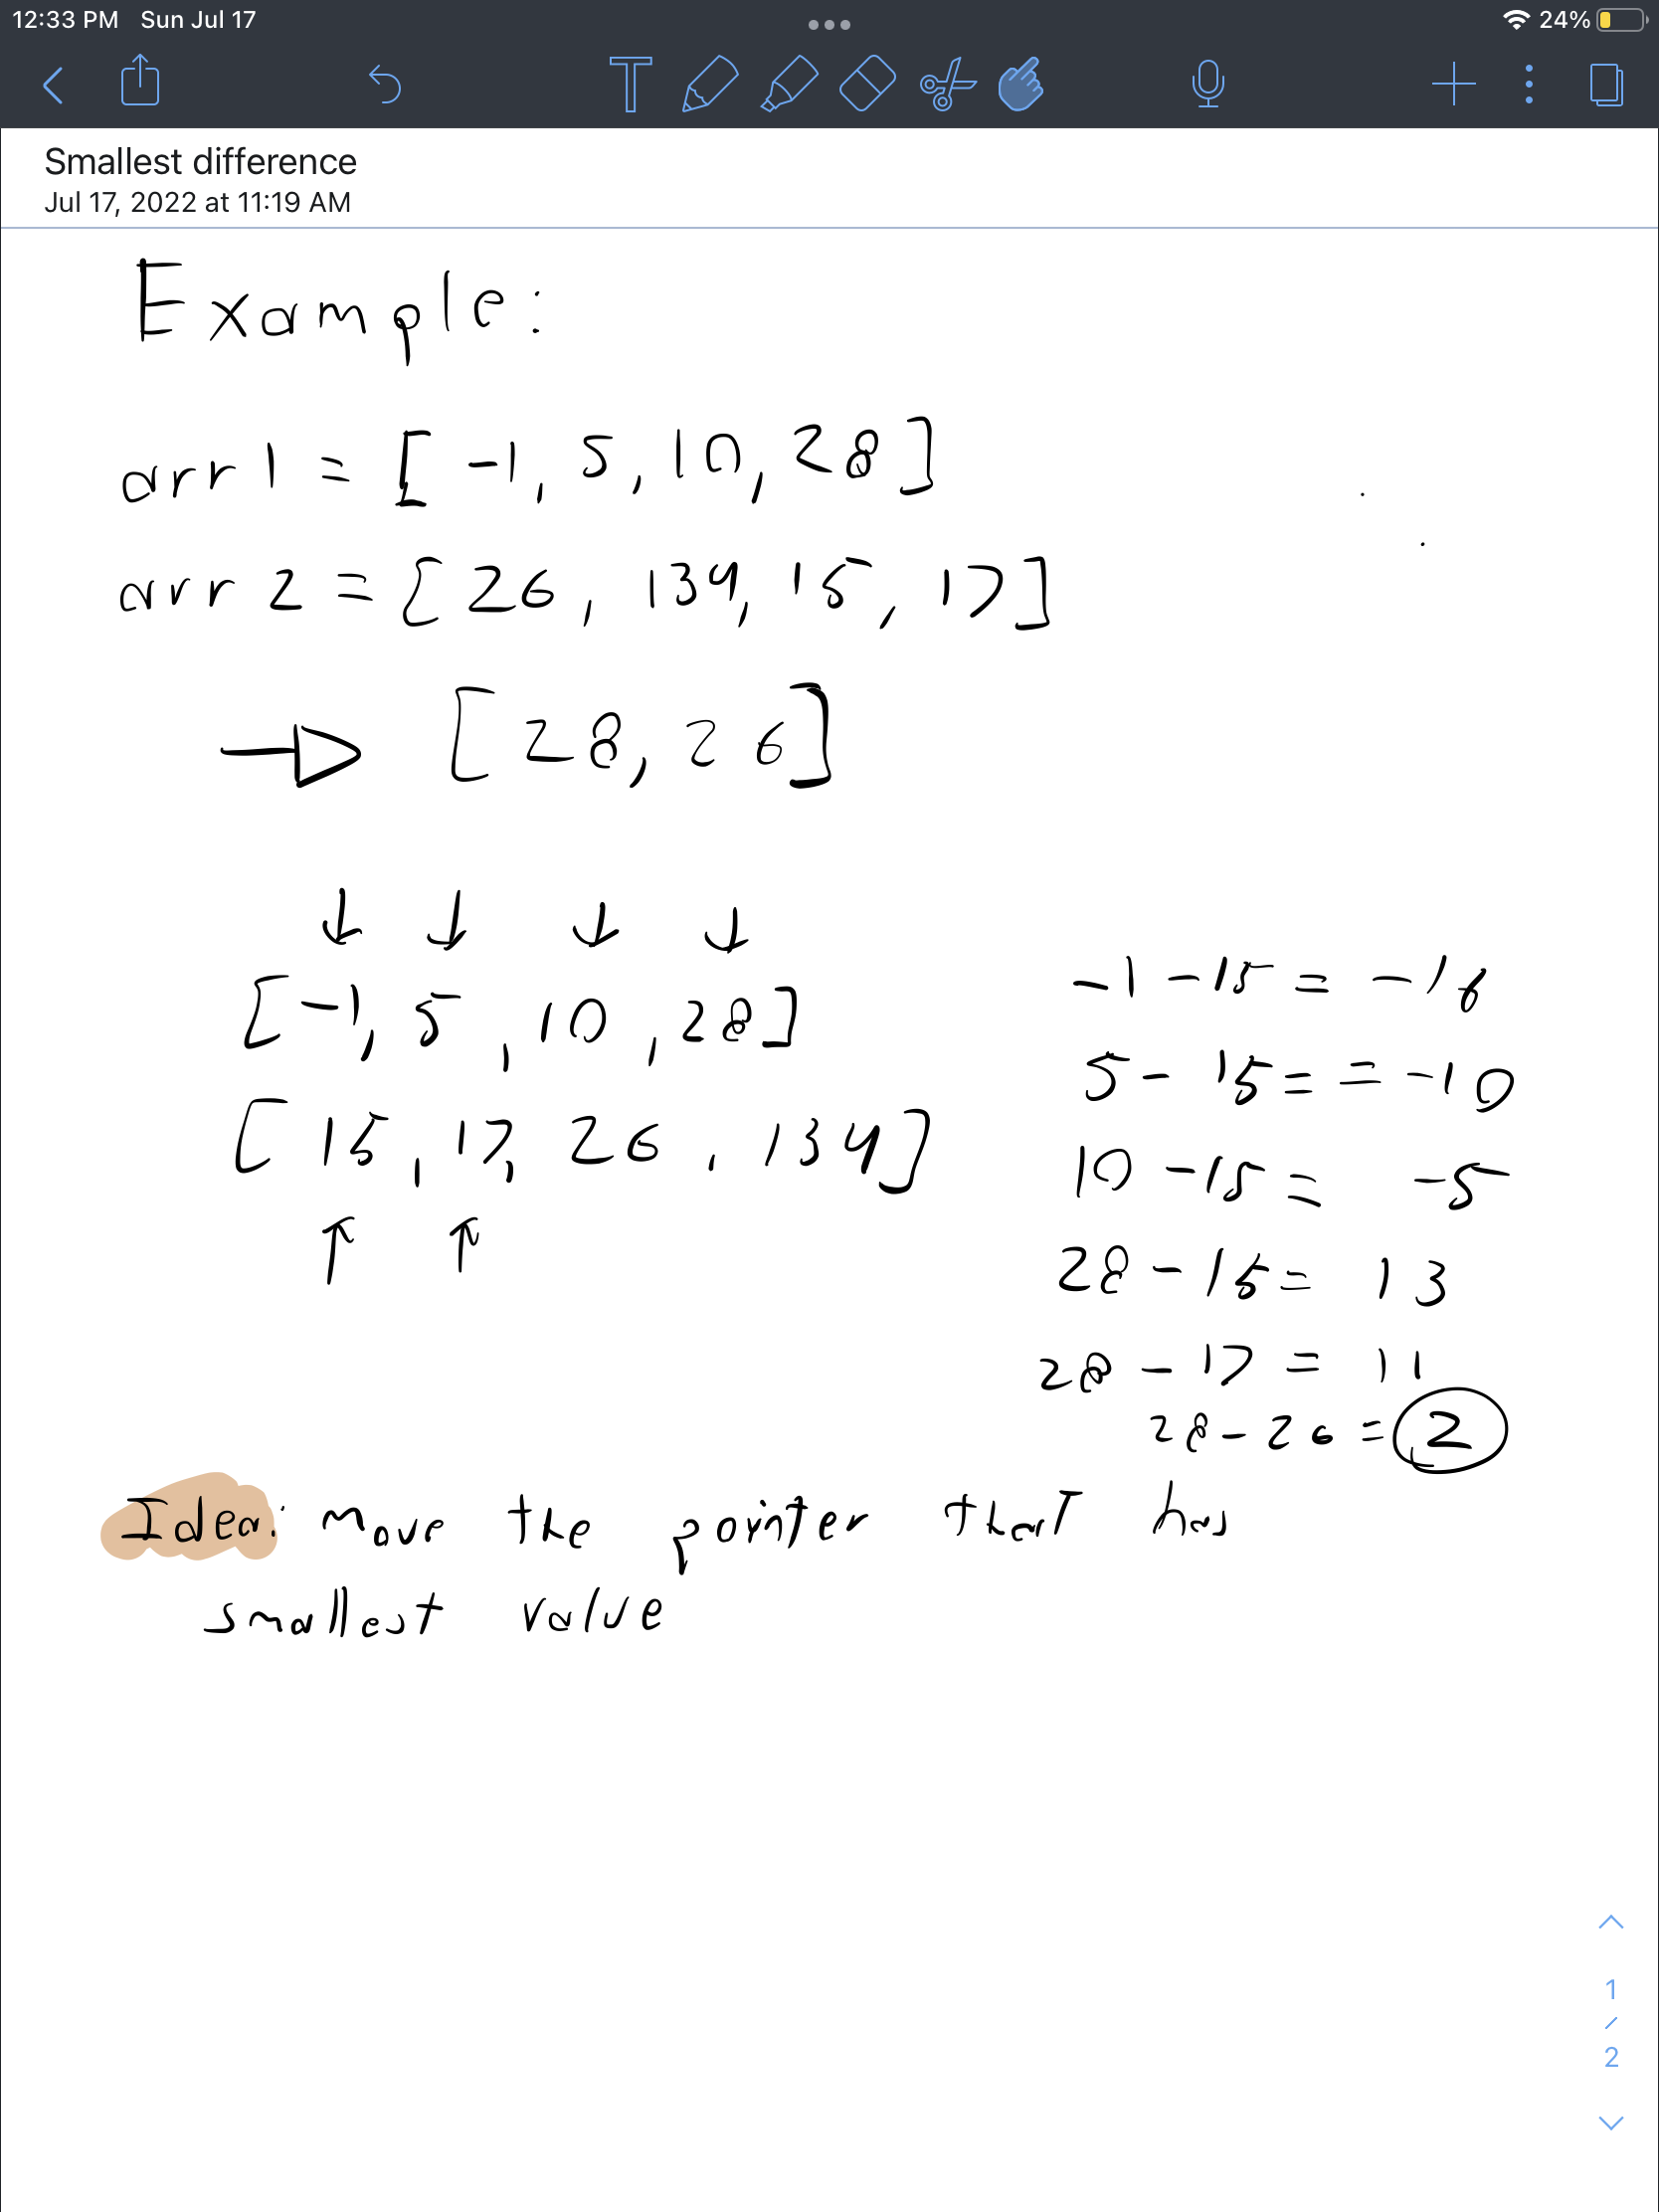 12:33 PM Sun Jul 17
24%
Smallest difference
Jul 17, 2022 at 11:19 AM
Example:
arr 1 = [ -1, 5, 10, 28 ]
arr 2 = [ 26, 134, 15, 17 ]
→ [ 28, 26 ]
↓ ↓ ↓ ↓
[ -1, 5, 10, 28 ]
[ 15, 17, 26, 134 ]
↑ ↑
-1 - 15 = -16
5 - 15 = = -10
10 - 15 = -5
28 - 15 = 13
28 - 17 = 11
28 - 26 = 2
Idea: move the pointer that has
smallest value
1
/
2